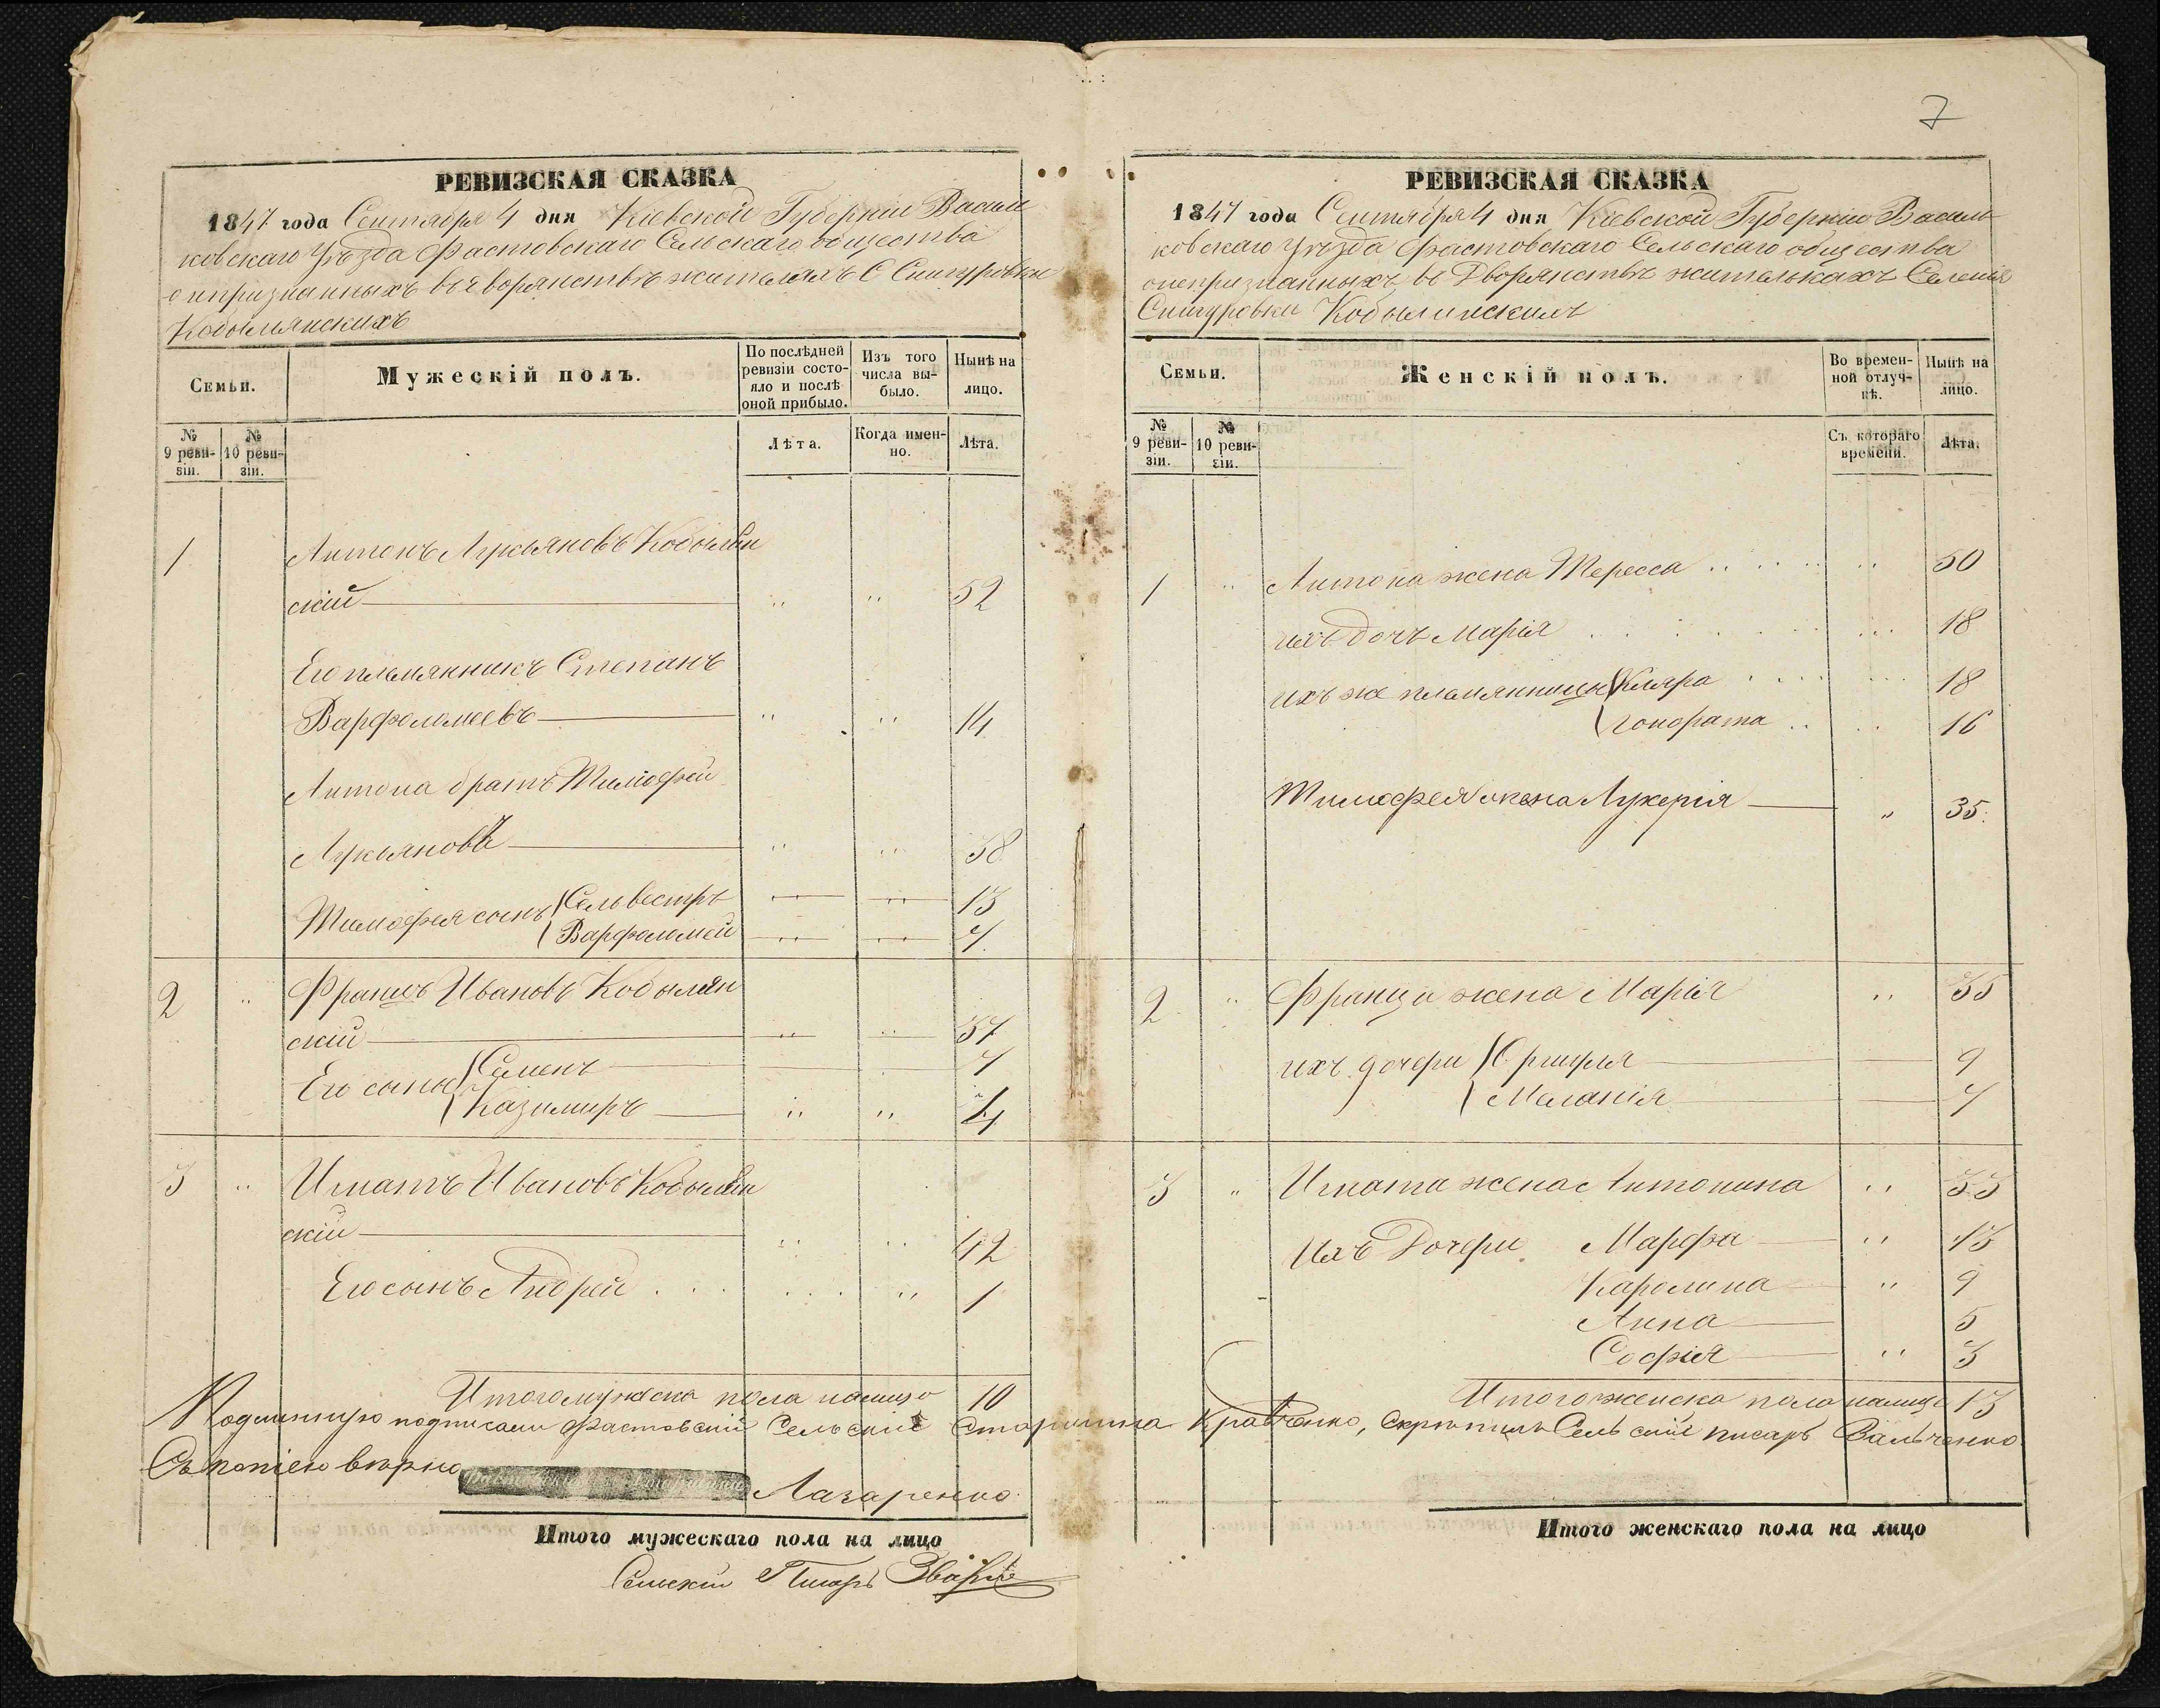 7
РЕВИЗСКАЯ СКАЗКА
1847 года Сентября 4 дня Кіевской Губерніи Василь
ковскаго Уѣзда Фастовскаго Сельскаго общества
о непризнанныхъ въ дворянствѣ жителяхъ С Снигуровки
Кобылянскихъ
Семьи.
Мужескій полъ.
По послѣдней ревизіи состояло и послѣ оной прибыло.
Изъ того числа выбыло.
Нынѣ на лицо.
№ 9 ревизіи.
№ 10 ревизіи.
Лѣта.
Когда именно.
Лѣта.
1 Антонъ Лукьяновъ Кобылян
скій 52
Его племянникъ Степанъ
Варфоломеевъ 14
Антона братъ Тимофей
Лукьяновъ 38
Тимофея сынъ Сельвестръ 13
Варфоломей 7
2 Францъ Ивановъ Кобылян
скій 37
Его сыны Семенъ 7
Казимиръ 4
3 Игнатъ Ивановъ Кобылян
скій 42
Его сынъ Андрей 1
Итого мужеска пола налицо 10
Подлинную подписали Фастовскій Сельскій Старшина Кравченко, Скрѣпилъ Сельскій писарь Вальченко
Съ копіею вѣрно
Лазаренко
Итого мужескаго пола на лицо
Сельскій Писарь
РЕВИЗСКАЯ СКАЗКА
1847 года Сентября 4 дня Кіевской Губерніи Василь
ковскаго Уѣзда Фастовскаго Сельскаго общества
о непризнанныхъ въ Дворянствѣ жителькахъ Селенія
Снигуровки Кобылянскихъ
Семьи.
Женскій полъ.
Во временной отлучкѣ.
Нынѣ на лицо.
№ 9 ревизіи.
№ 10 ревизіи.
Съ котораго времени.
Лѣта.
1 Антона жена Тересса 50
ихъ дочь Марія 18
ихъ же племянницы Кляра 18
Гонората 16
Тимофея жена Лукерія 35
2 Франца жена Марія 35
ихъ дочери 9
Меланія 7
3 Игната жена Антонина 33
Ихъ Дочери Марфа 13
Каролина 9
Анна 5
Софія 3
Итого женска пола налицо 13
Итого женскаго пола на лицо